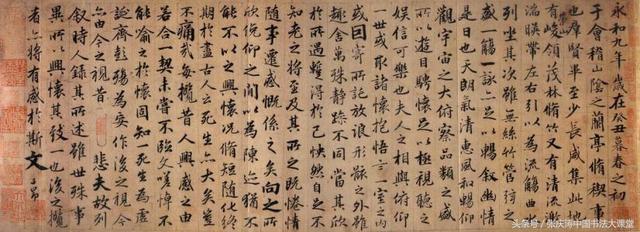 永和九年歲在癸丑暮春之初會
于會稽山陰之蘭亭脩稧事
也羣賢畢至少長咸集此地
有崇山峻領茂林脩竹又有清流激
湍暎帶左右引以為流觴曲水
列坐其次雖無絲竹管弦之
盛一觴一詠亦足以暢敘幽情
是日也天朗氣清惠風和暢仰
觀宇宙之大俯察品類之盛
所以遊目騁懷足以極視聽之
娛信可樂也夫人之相與俯仰
一世或取諸懷抱悟言一室之內
或因寄所託放浪形骸之外雖
趣舍萬殊靜躁不同當其欣
於所遇蹔得於己怏然自足不
知老之將至及其所之既惓情
隨事遷感慨係之矣向之所
欣俛仰之間以為陳迹猶不
能不以之興懷況脩短隨化終
期於盡古人云死生亦大矣豈
不痛哉每攬昔人興感之由
若合一契未嘗不臨文嗟悼不
能喻之於懷固知一死生為虛
誕齊彭殤為妄作後之視今
亦由今之視昔 悲夫故列
敘時人錄其所述雖世殊事
異所以興懷其致一也後之攬
者亦將有感於斯文 子昂
头条号/张庆涛中国书法大课堂